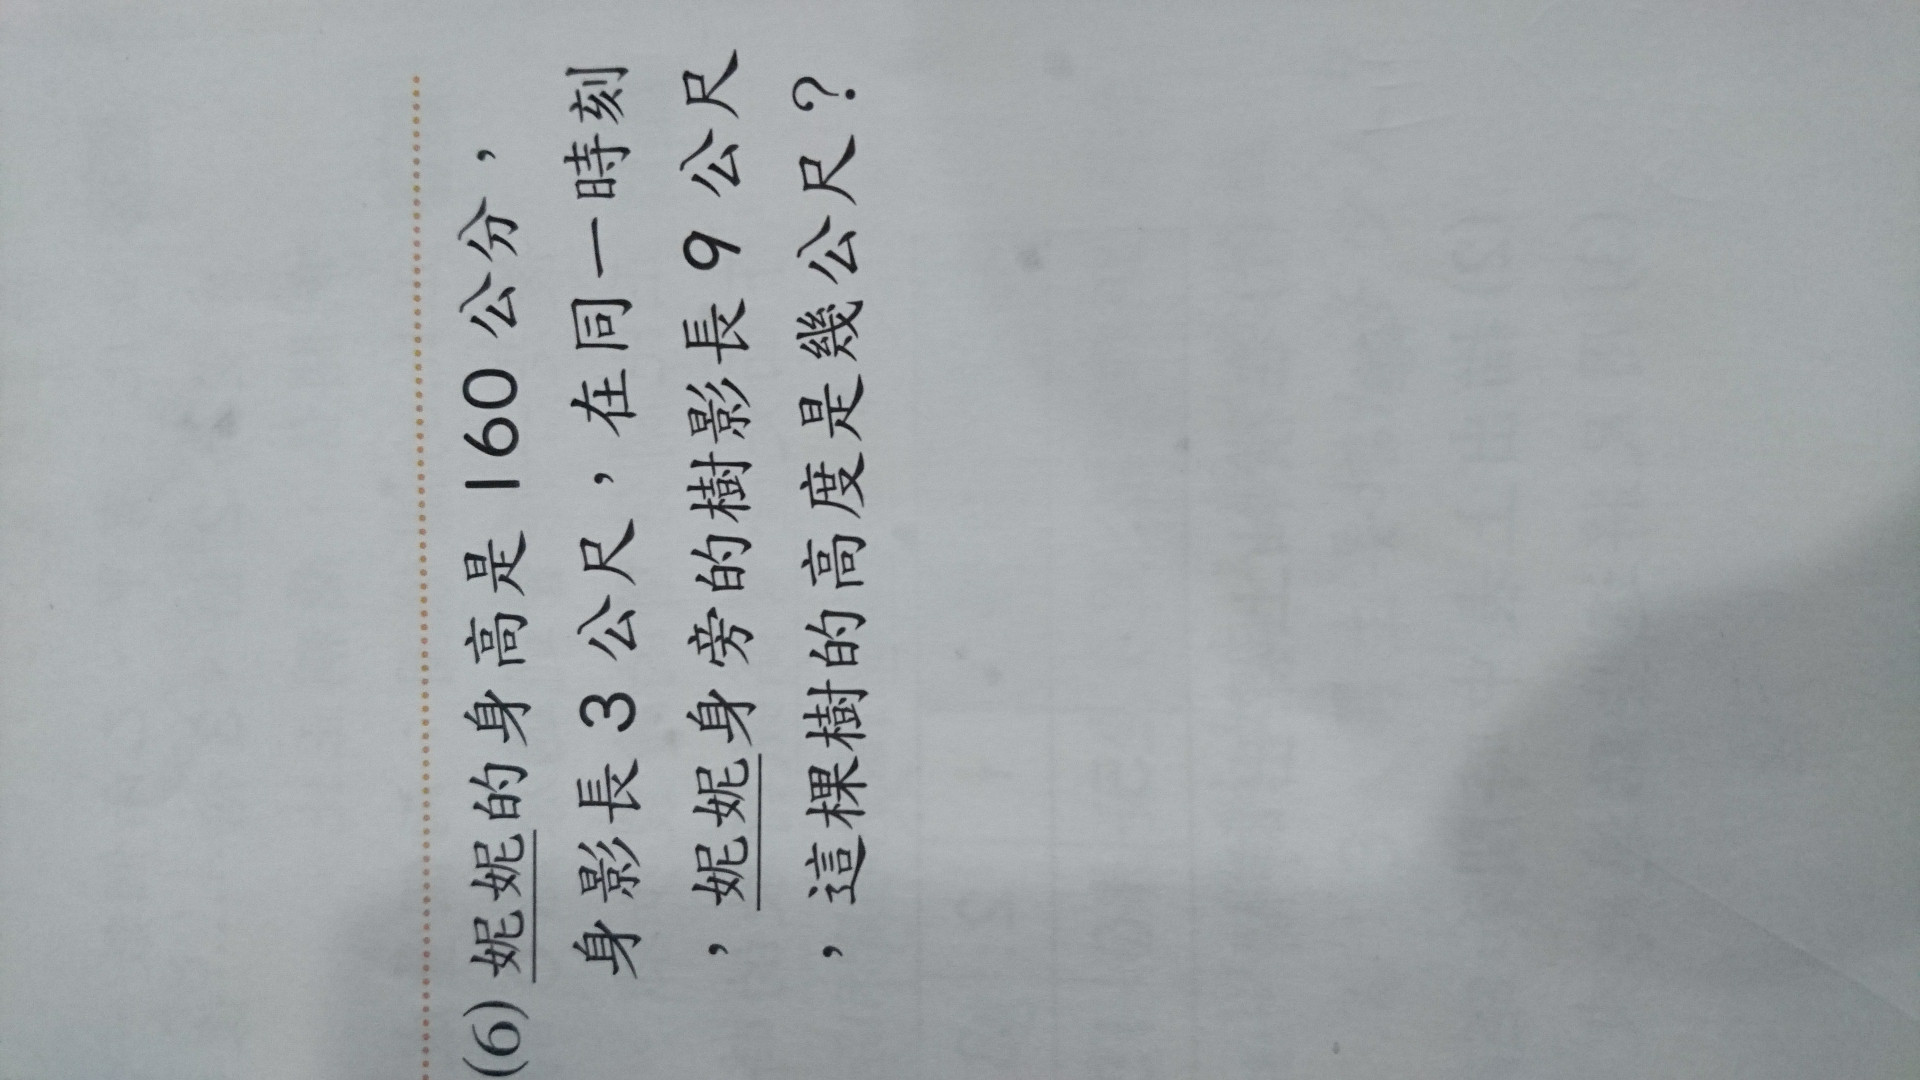 (6) 妮妮的身高是 160 公分，
身影長 3 公尺，在同一時刻
，妮妮身旁的樹影長 9 公尺
，這棵樹的高度是幾公尺？